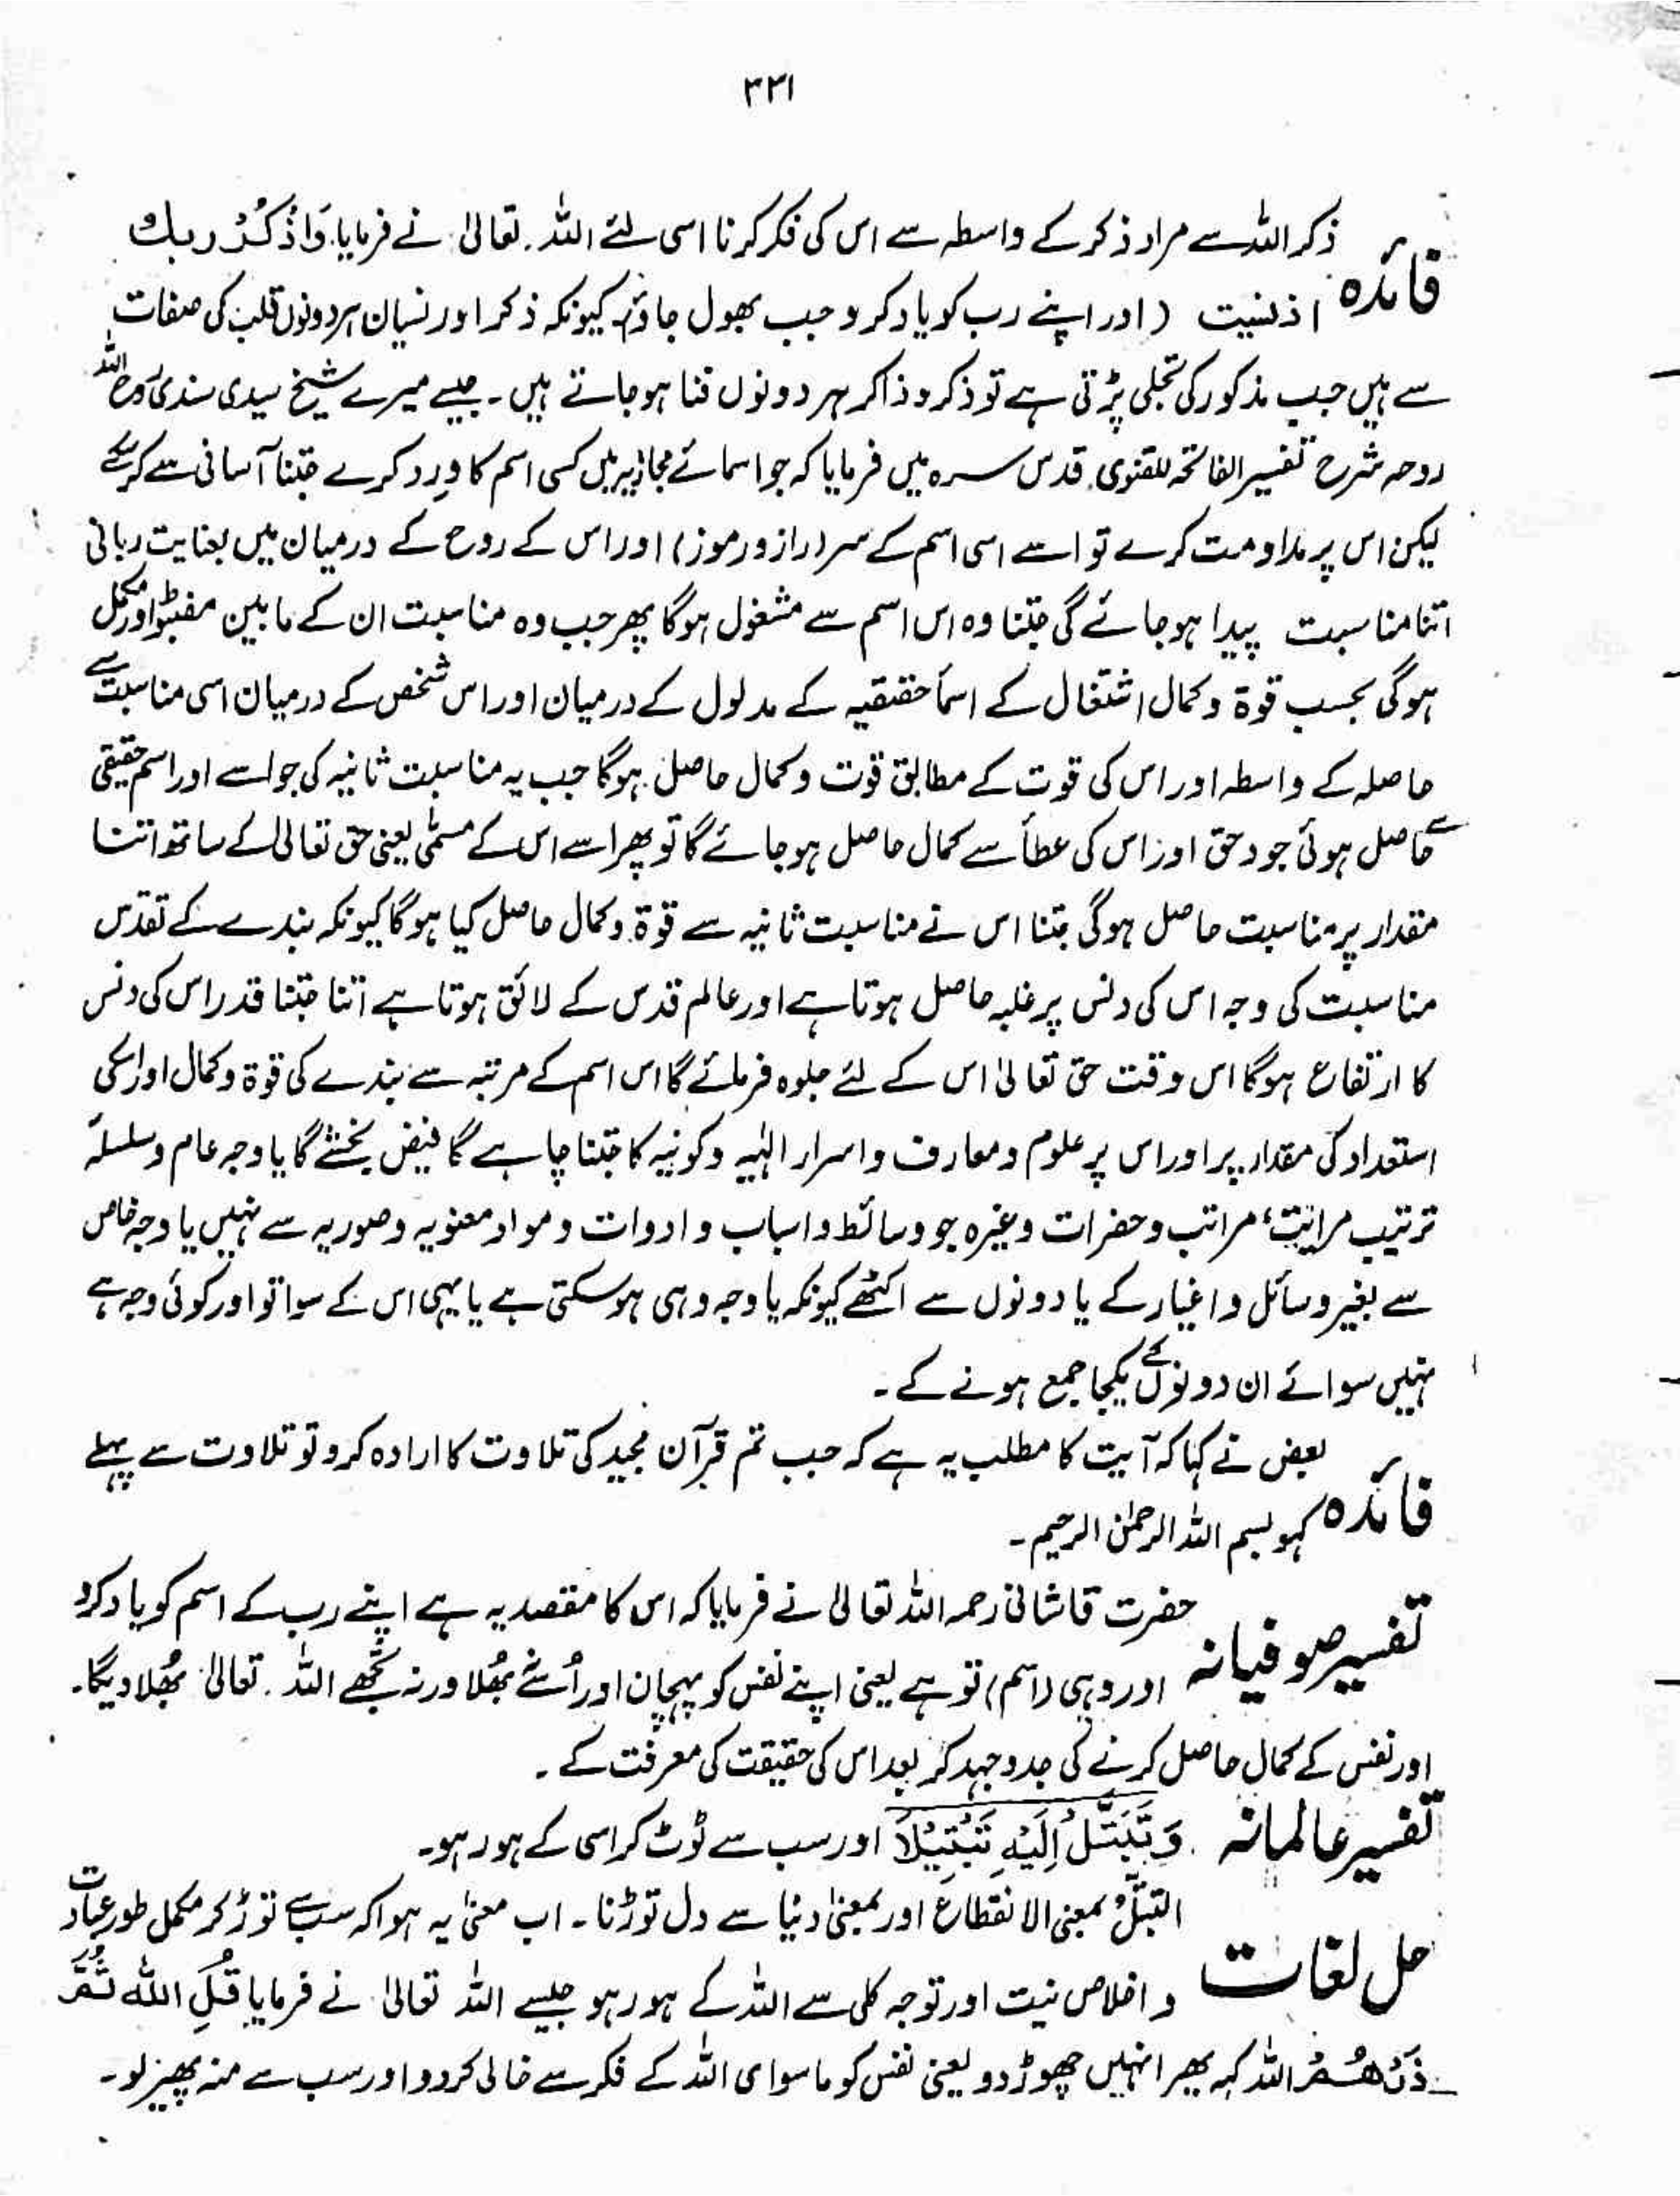 ۳۳۱
ذکر اللہ سے مراد ذکر کے واسطہ سے اس کی فکر کرنا اسی لئے اللہ تعالیٰ نے فرمایا وَاذْکُرْ ربك
فائدہ اذنسیت (اور اپنے رب کو یاد کرو جب بھول جاؤ) کیونکہ ذکر اور نسیان ہر دونوں قلب کی صفات
سے ہیں جب مذکور کی تجلی پڑتی ہے تو ذکر و ذاکر ہر دونوں فنا ہو جاتے ہیں ۔ جیسے میرے شیخ سیدی سندی روح اللہ
روحہ شرح تفسیر الفاتحہ للقنوی قدس سرہ میں فرمایا کہ جو اسمائے مجازیہ میں کسی اسم کا وِرد کرے جتنا آسانی سے کرسکے
لیکن اس پر مداومت کرے تو اسے اسی اسم کے سر (راز و رموز) اور اس کے روح کے درمیان میں بعنایت ربانی
اتنا مناسبت پیدا ہو جائے گی جتنا وہ اس اسم سے مشغول ہوگا پھر جب وہ مناسبت ان کے مابین مضبوط اور مکمل
ہوگی بحسب قوۃ وکمال اشتغال کے اسمأ حقیقیہ کے مدلول کے درمیان اور اس شخص کے درمیان اسی مناسبت سے
حاصلہ کے واسطہ اور اس کی قوت کے مطابق قوت وکمال حاصل ہوگا جب یہ مناسبت ثانیہ کی جو اسے اور اسم حقیقی
سے حاصل ہوئی جود حق اور اس کی عطأ سے کمال حاصل ہو جائے گا تو پھر اسے اس کے مسمّٰی یعنی حق تعالیٰ کے ساتھ اتنا
مقدار پر مناسبت حاصل ہوگی جتنا اس نے مناسبت ثانیہ سے قوۃ وکمال حاصل کیا ہوگا کیونکہ بندے کے تقدس
مناسبت کی وجہ اس کی دنس پر غلبہ حاصل ہوتا ہے اور عالم قدس کے لائق ہوتا ہے اتنا جتنا قدر اس کی دنس
کا ارتفاع ہوگا اس وقت حق تعالیٰ اس کے لئے جلوہ فرمائے گا اس اسم کے مرتبہ سے بندے کی قوۃ وکمال اور اسکی
استعداد کی مقدار پر اور اس پر علوم ومعارف واسرار الٰہیہ وکونیہ کا جتنا چاہے گا فیض بخشے گا یا وجہ عام وسلسلہ
ترتیب مراتب وحضرات وغیرہ جو وسائط واسباب وادوات ومواد معنویہ وصوریہ سے نہیں یا وجہ خاص
سے بغیر وسائل واغیار کے یا دونوں سے اکٹھے کیونکہ یا وجہ وہی ہو سکتی ہے یا یہی اس کے سوا تو اور کوئی وجہ ہے
نہیں سوائے ان دونوں کے یکجا جمع ہونے کے ۔
بعض نے کہا کہ آیت کا مطلب یہ ہے کہ جب تم قرآن مجید کی تلاوت کا ارادہ کرو تو تلاوت سے پہلے
فائدہ کہو بسم اللہ الرحمٰن الرحیم ۔
حضرت قاشانی رحمہ اللہ تعالیٰ نے فرمایا کہ اس کا مقصد یہ ہے اپنے رب کے اسم کو یاد کرو
تفسیر صوفیانہ اور وہی (اسم) تو ہے یعنی اپنے نفس کو پہچان اور اُسے نہ بھُلا ورنہ تجھے اللہ تعالیٰ بھُلا دیگا۔
اور نفس کے کمال حاصل کرنے کی جدوجہد کر بعد اس کی حقیقت کی معرفت کے ۔
تفسیر عالمانہ وَ تَبَتَّلْ اِلَیْہِ تَبْتِیْلاً اور سب سے ٹوٹ کر اسی کے ہو رہو۔
التبتّل بمعنی الانقطاع اور بمعنیٰ دنیا سے دل توڑنا ۔ اب معنیٰ یہ ہوا کہ سب سے توڑ کر مکمل طور عبادت
حل لغات و اخلاص نیت اور توجہ کلی سے اللہ کے ہو رہو جیسے اللہ تعالیٰ نے فرمایا قُلِ اللہ ثُمَّ
ذَرْھُمْ اللہ کہہ پھر انہیں چھوڑ دو یعنی نفس کو ماسوای اللہ کے فکر سے خالی کردو اور سب سے منہ پھیر لو ۔